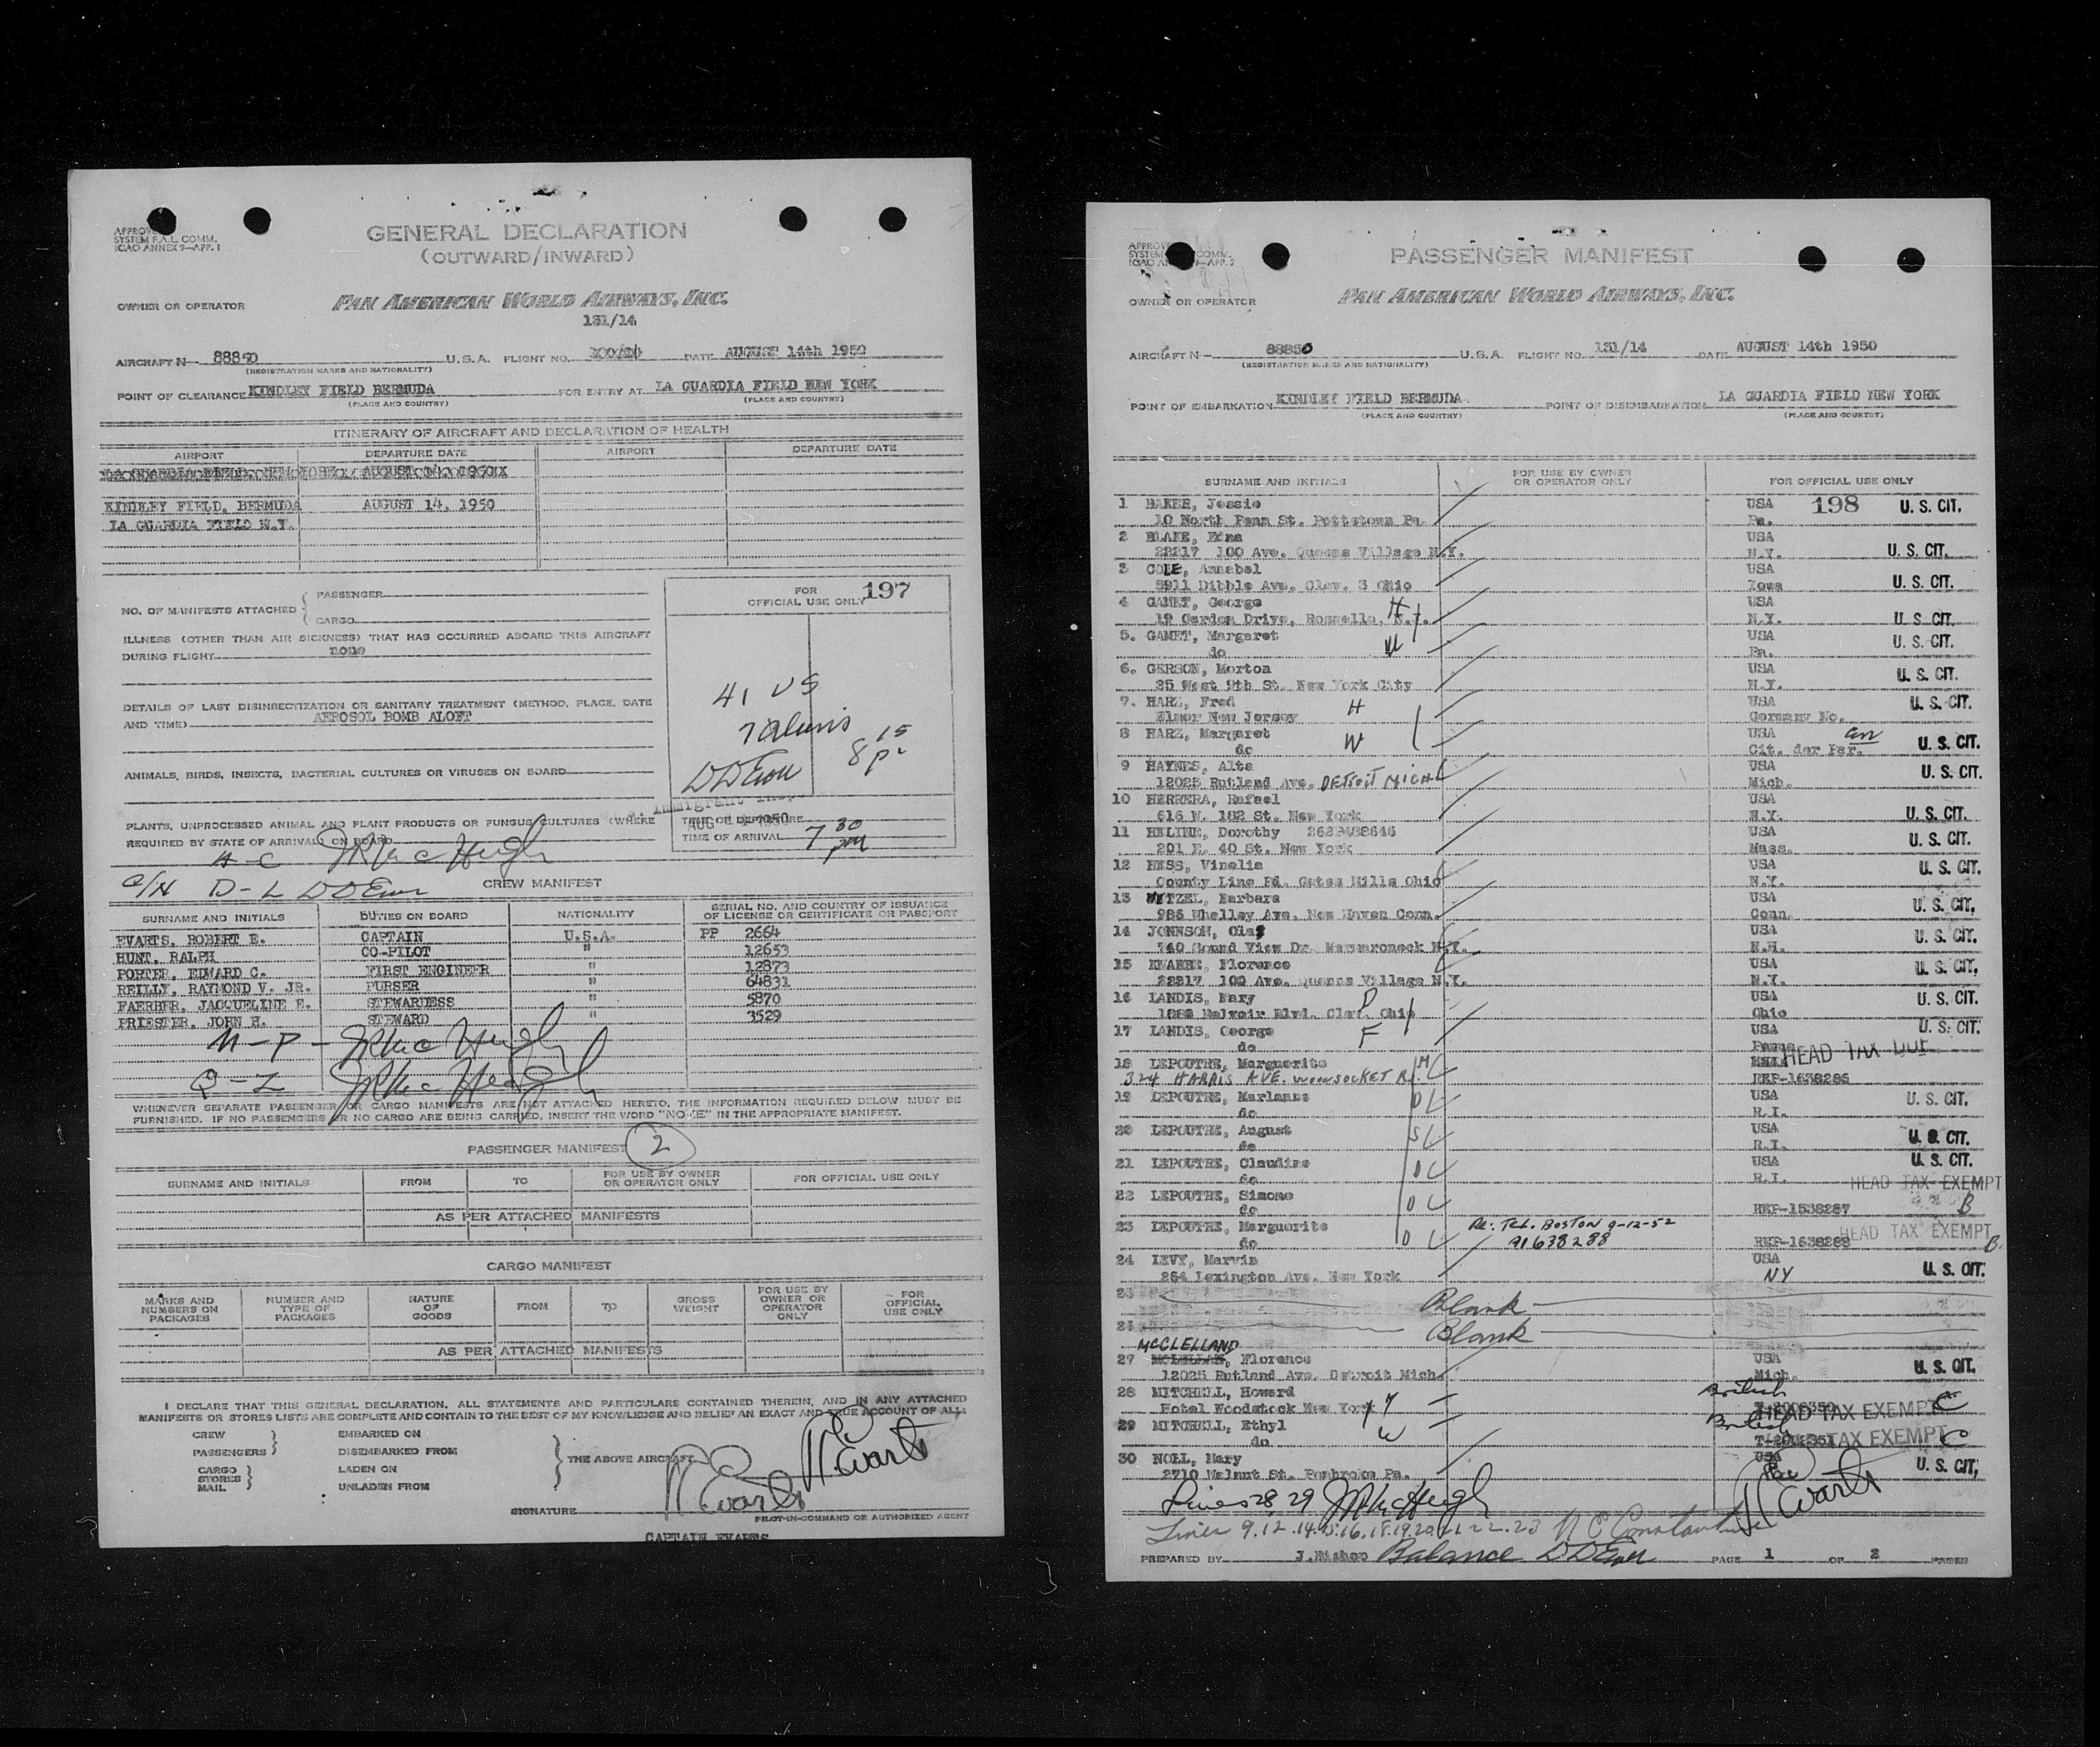 GENERAL DECLARATION
(OUTWARD/INWARD)
SYSTEM F.A.L. COMM.
ICAO ANNEX 9—APP. 1
OWNER OR OPERATOR PAN AMERICAN WORLD AIRWAYS, INC.
131/14
AIRCRAFT N- 88850 U.S.A. FLIGHT NO. DATE AUGUST 14th 1950
(REGISTRATION MARKS AND NATIONALITY)
POINT OF CLEARANCE KINDLEY FIELD BERMUDA FOR ENTRY AT LA GUARDIA FIELD NEW YORK
(PLACE AND COUNTRY) (PLACE AND COUNTRY)
ITINERARY OF AIRCRAFT AND DECLARATION OF HEALTH
AIRPORT DEPARTURE DATE AIRPORT DEPARTURE DATE
KINDLEY FIELD, BERMUDA AUGUST 14, 1950
LA GUARDIA FIELD N.Y.
NO. OF MANIFESTS ATTACHED { PASSENGER
CARGO
FOR OFFICIAL USE ONLY 197
ILLNESS (OTHER THAN AIR SICKNESS) THAT HAS OCCURRED ABOARD THIS AIRCRAFT
DURING FLIGHT none
41 US
7 Aliens
8 15 p
DETAILS OF LAST DISINSECTIZATION OR SANITARY TREATMENT (METHOD, PLACE, DATE
AND TIME) AEROSOL BOMB ALOFT
ANIMALS, BIRDS, INSECTS, BACTERIAL CULTURES OR VIRUSES ON BOARD
PLANTS, UNPROCESSED ANIMAL AND PLANT PRODUCTS OR FUNGUS CULTURES (WHERE
REQUIRED BY STATE OF ARRIVAL) ON BOARD
TIME OF DEPARTURE
TIME OF ARRIVAL 7 30 pm
A-C
D-L
CREW MANIFEST
SURNAME AND INITIALS DUTIES ON BOARD NATIONALITY SERIAL NO. AND COUNTRY OF ISSUANCE
OF LICENSE OR CERTIFICATE OR PASSPORT
EVARTS, ROBERT E. CAPTAIN U.S.A. PP 2664
HUNT, RALPH CO-PILOT " 12653
PORTER, EDWARD C. FIRST ENGINEER " 12873
REILLY, RAYMOND V. JR. PURSER " 64831
FAERBER, JACQUELINE E. STEWARDESS " 5870
PRIESTER, JOHN H. STEWARD " 3529
M-P-
Q-Z
WHENEVER SEPARATE PASSENGER OR CARGO MANIFESTS ARE NOT ATTACHED HERETO, THE INFORMATION REQUIRED BELOW MUST BE
FURNISHED. IF NO PASSENGERS OR NO CARGO ARE BEING CARRIED, INSERT THE WORD "NONE" IN THE APPROPRIATE MANIFEST.
PASSENGER MANIFEST 2
SURNAME AND INITIALS FROM TO FOR USE BY OWNER
OR OPERATOR ONLY FOR OFFICIAL USE ONLY
AS PER ATTACHED MANIFESTS
CARGO MANIFEST
MARKS AND NUMBERS ON PACKAGES NUMBER AND TYPE OF PACKAGES NATURE OF GOODS FROM TO GROSS WEIGHT FOR USE BY OWNER OR OPERATOR ONLY FOR OFFICIAL USE ONLY
AS PER ATTACHED MANIFESTS
I DECLARE THAT THIS GENERAL DECLARATION, ALL STATEMENTS AND PARTICULARS CONTAINED THEREIN, AND IN ANY ATTACHED
MANIFESTS OR STORES LISTS ARE COMPLETE AND CONTAIN TO THE BEST OF MY KNOWLEDGE AND BELIEF AN EXACT AND TRUE ACCOUNT OF ALL:
CREW EMBARKED ON
PASSENGERS DISEMBARKED FROM
THE ABOVE AIRCRAFT
CARGO
STORES LADEN ON
MAIL UNLADEN FROM
SIGNATURE
PILOT-IN-COMMAND OR AUTHORIZED AGENT
CAPTAIN EVARTS
PASSENGER MANIFEST
OWNER OR OPERATOR PAN AMERICAN WORLD AIRWAYS, INC.
AIRCRAFT N- 88850 U.S.A. FLIGHT NO. 131/14 DATE AUGUST 14th 1950
(REGISTRATION MARKS AND NATIONALITY)
POINT OF EMBARKATION KINDLEY FIELD BERMUDA POINT OF DISEMBARKATION LA GUARDIA FIELD NEW YORK
(PLACE AND COUNTRY) (PLACE AND COUNTRY)
SURNAME AND INITIALS FOR USE BY OWNER
OR OPERATOR ONLY FOR OFFICIAL USE ONLY
1 BAKER, Jessie USA 198 U. S. CIT.
10 North Penn St. Pottstown Pa. Pa.
2 BLAKE, Edna USA
22217 100 Ave. Queens Village N.Y. N.Y. U. S. CIT.
3 COLE, Annabel USA
5911 Dibble Ave. Clev. 3 Ohio Iowa U. S. CIT.
4 GAMET, George H USA
19 Garden Drive, Roselle, N.J. N.Y. U. S. CIT.
5. GAMET, Margaret W USA U. S. CIT.
do Pa.
6. GERSON, Morton USA U. S. CIT.
25 West 9th St. New York City N.Y.
7. HARZ, Fred H USA U. S. CIT.
Elmer New Jersey Germany No.
8 HARZ, Margaret W USA
do Cit. der Par. U. S. CIT.
9 HAYNES, Alta USA U. S. CIT.
12025 Rutland Ave. DETROIT MICH Mich.
10 HERRERA, Rafael USA
616 W. 182 St. New York N.Y. U. S. CIT.
11 HELINE, Dorothy USA U. S. CIT.
201 E. 40 St. New York Mass.
12 HESS, Vinelia USA U. S. CIT.
County Line Rd. Gates Mills Ohio N.Y.
13 Barbara USA U. S. CIT.
986 Whalley Ave. New Haven Conn. Conn.
14 JOHNSON, Olaf USA U. S. CIT.
740 Sound View Dr. Mamaroneck N.Y. N.H.
15 Florence USA U. S. CIT.
22217 100 Ave. Queens Village N.Y. N.Y.
16 LANDIS, Mary D USA U. S. CIT.
Blvd. Clev. Ohio Ohio
17 LANDIS, George F USA U. S. CIT.
do Penna
18 LEPOUTRE, Marguerite M HEAD TAX DUE
324 HARRIS AVE. WOONSOCKET R.I. REP-1638286
19 LEPOUTRE, Marianne D USA U. S. CIT.
do R.I.
20 LEPOUTRE, August S USA U. S. CIT.
do R.I.
21 LEPOUTRE, Claudine D USA U. S. CIT.
do R.I. HEAD TAX EXEMPT
22 LEPOUTRE, Simone D B
do REP-1638287
23 LEPOUTRE, Marguerite D Re: Tel. BOSTON 9-12-52 HEAD TAX EXEMPT
do A1638288 REP-1638288 B.
24 LEVY, Marvin USA U. S. CIT.
264 Lexington Ave. New York NY
25 Blank
26 Blank
MCCLELLAND
27 Florence USA U. S. CIT.
12025 Rutland Ave. Detroit Mich. Mich.
28 MITCHELL, Howard British
Hotel Woodstock New York H HEAD TAX EXEMPT C
29 MITCHELL, Ethyl W British
do TAX EXEMPT C
30 NOLL, Mary USA U. S. CIT.
2710 Walnut St. Pembroke Pa.
Lines 28, 29
Lines 9.12.14.15.16.18.19.20.21.22.23
PREPARED BY J. Bishop Balance PAGE 1 OF 2 PAGES